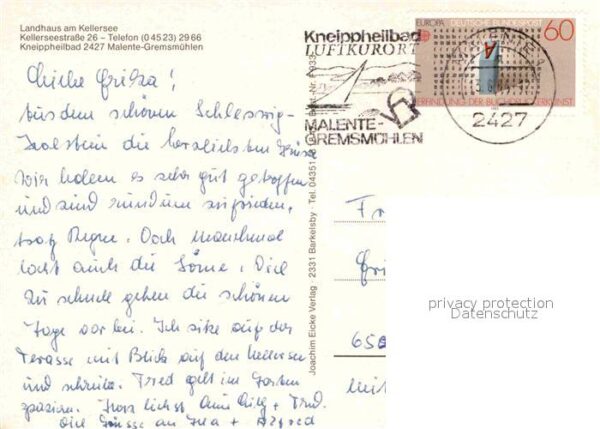 Landhaus am Kellersee
Kellerseestraße 26 – Telefon (0 45 23) 29 66
Kneippheilbad 2427 Malente-Gremsmühlen
Kneippheilbad
LUFTKURORT
MALENTE-
GREMSMÜHLEN
EUROPA DEUTSCHE BUNDESPOST 60
ERFINDUNG DER BUCHDRUCKERKUNST
2427
Aus dem schönen Schleswig-
Holstein die herzlichsten Grüsse
Wir haben es sehr gut getroffen
und sind rundum zufrieden,
trotz Regen. Doch manchmal
lacht auch die Sonne. Viel
zu schnell gehen die schönen
Tage vorbei. Ich sitze auf der
Terasse mit Blick auf den Kellersee
und schreibe. Fred geht im Garten
spazieren. Herzlichst +
Viele Grüsse an + Alfred
Joachim Eicke Verlag 2331 Barkelsby · Tel. 04351
650
privacy protection
Datenschutz